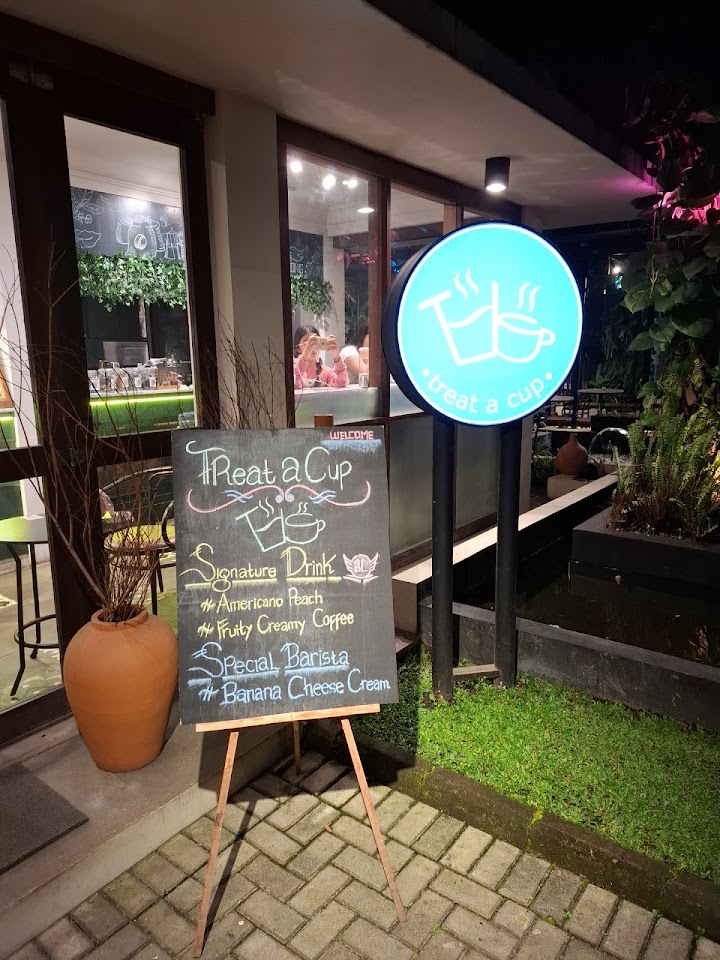 WELCOME
TReat a Cup
Signature Drink
# Americano Peach
# Fruity Creamy Coffee
Special Barista
# Banana Cheese Cream
• treat a cup •